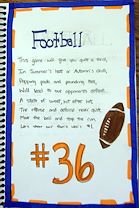 Football
This game will give you quite a thrill,
In Summer's heat or Autumn's chill,
Popping pads and pounding feet,
Will lead to our opponents defeat.
A state of sweat, but after that,
The offense and defense never quit.
Move the ball and stop the run,
Let's show our fans we're #1
#36